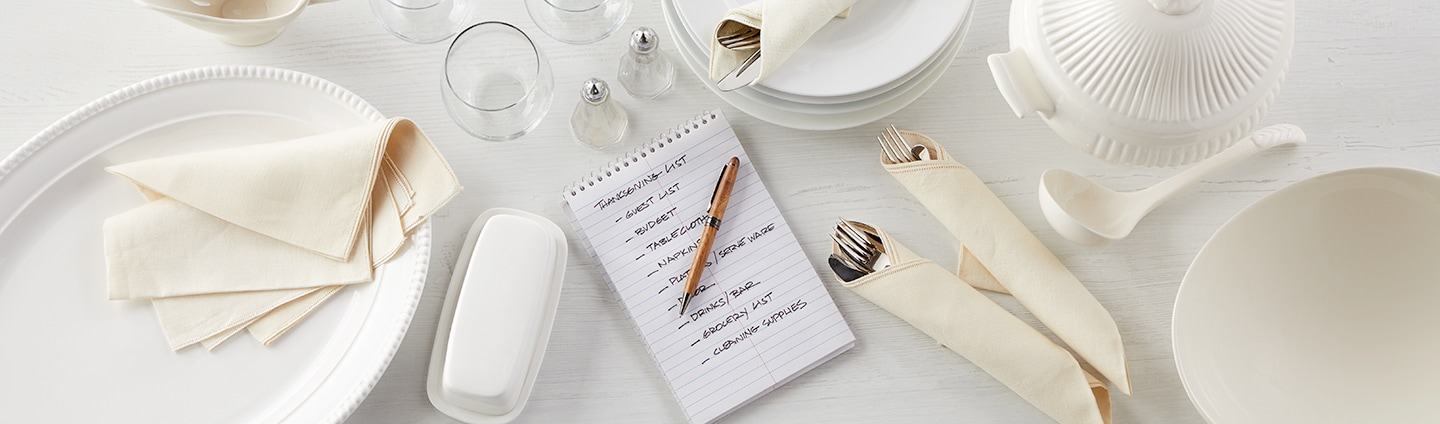 THANKSGIVING LIST
- GUEST LIST
- BUDGET
- TABLECLOTH
- NAPKINS
- / SERVE WARE
-
- DRINKS / BAR
- GROCERY LIST
- CLEANING SUPPLIES